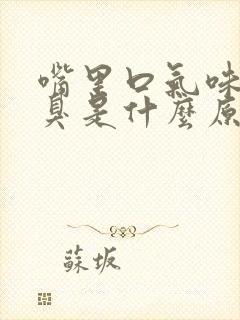 嘴里口氣味
臭是什麼原
蘇坂